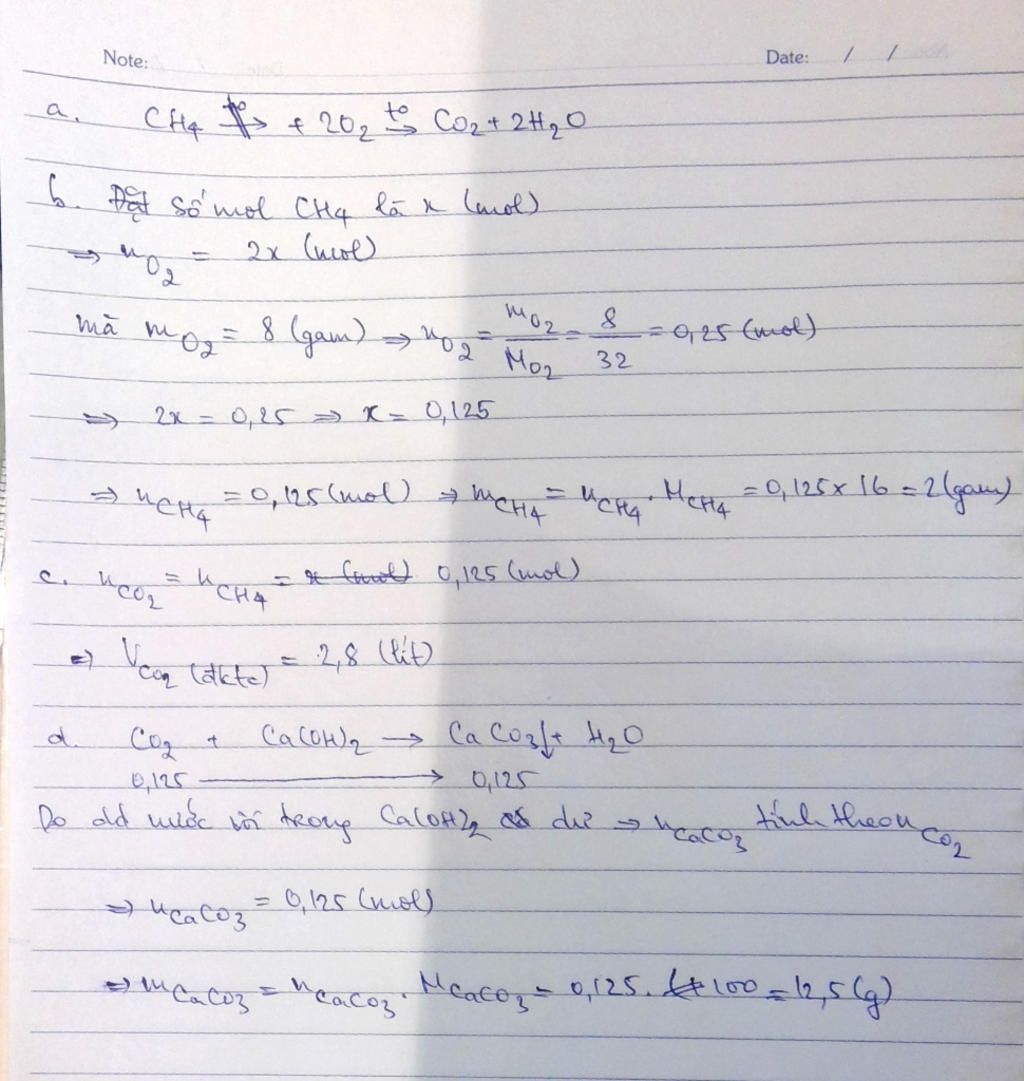 Note: Date: / /
a. CH4 + 2O2 t° → CO2 + 2H2O
b. Đặt số mol CH4 là x (mol)
⇒ nO2 = 2x (mol)
mà mO2 = 8 (gam) ⇒ nO2 = mO2/MO2 = 8/32 = 0,25 (mol)
⇒ 2x = 0,25 ⇒ x = 0,125
⇒ nCH4 = 0,125 (mol) ⇒ mCH4 = nCH4 . MCH4 = 0,125 x 16 = 2 (gam)
c. nCO2 = nCH4 = x (mol) 0,125 (mol)
⇒ VCO2 (đktc) = 2,8 (lít)
d. CO2 + Ca(OH)2 → CaCO3↓ + H2O
0,125 → 0,125
Do dd nước vôi trong Ca(OH)2 dư ⇒ nCaCO3 tính theo nCO2
⇒ nCaCO3 = 0,125 (mol)
⇒ mCaCO3 = nCaCO3 . MCaCO3 = 0,125 . 100 = 12,5 (g)